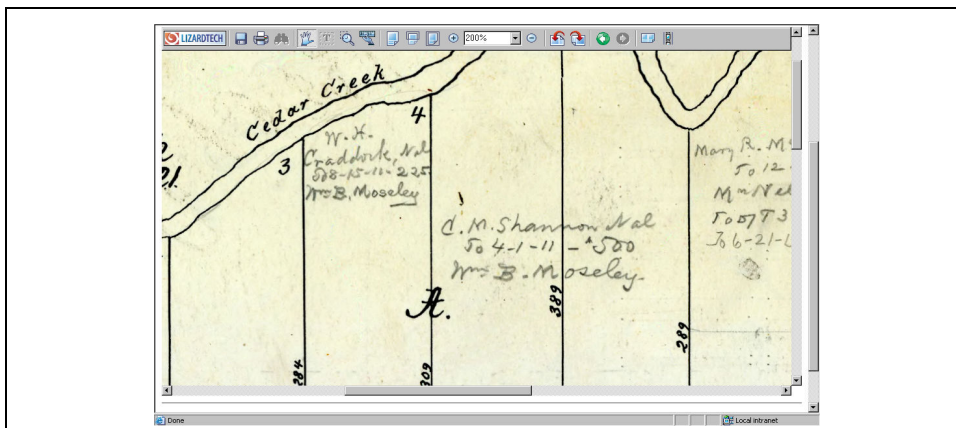 LIZARDTECH
200%
Cedar Creek
4
3
21.
W. H.
Craddock, Nal
8-15-11-225
Wm B. Moseley
C. M. Shannon Nal
To 4-1-11 - $500
Wm B. Moseley.
Mary R. M
To 12-
To
6-21-
A.
284
309
389
289
Done
Local intranet